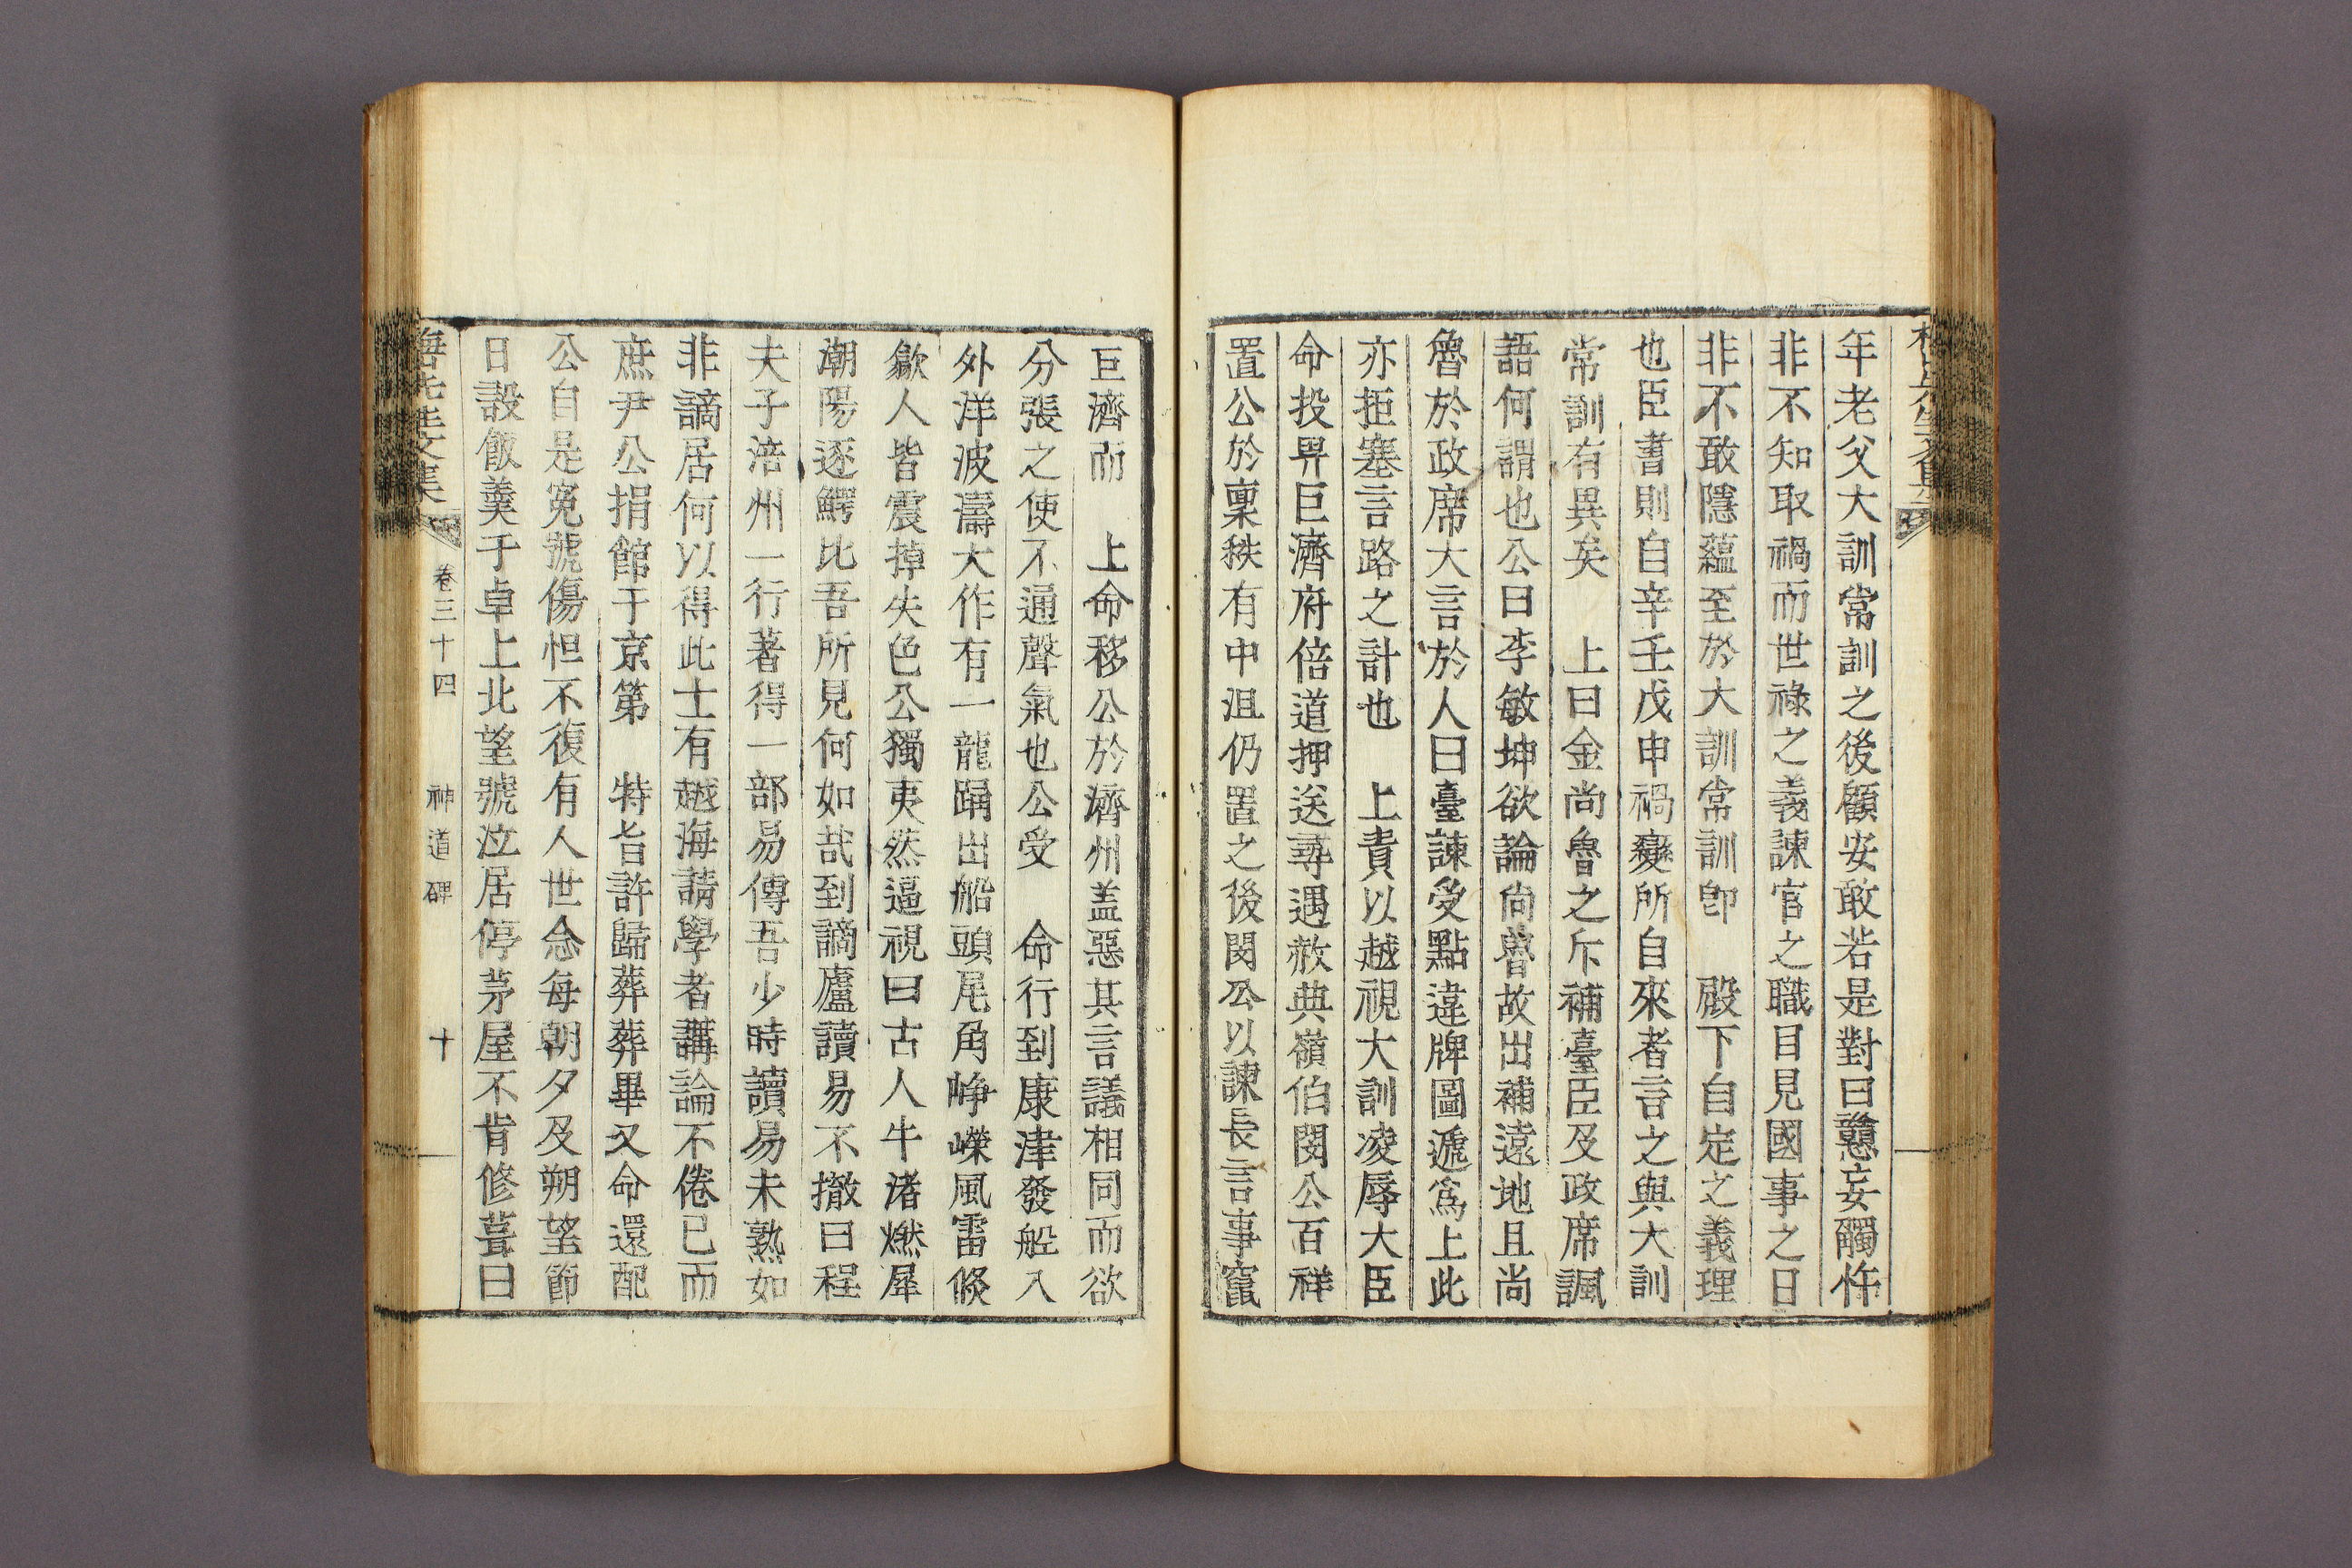 年老父大訓常訓之後顧安敢若是對曰戇妄觸忤
非不知取禍而世祿之義諫官之職目見國事之日
非不敢隱蘊至於大訓常訓卽　殿下自定之義理
也臣書則自辛壬戊申禍變所自來者言之與大訓
常訓有異矣　上曰金尚魯之斥補臺臣及政席諷
語何謂也公曰李敏坤欲論尙魯故出補遠地且尚
魯於政席大言於人曰臺諫受點違牌圖遞爲上此
亦拒塞言路之計也　上責以越視大訓凌辱大臣
命投畀巨濟府倍道押送尋遇赦典嶺伯閔公百祥
置公於稟秩有中沮仍置之後閔公以諫長言事竄
巨濟而　上命移公於濟州盖惡其言議相同而欲
分張之使不通聲氣也公受　命行到康津發船入
外洋波濤大作有一龍踊出船頭尾角崢嶸風雷倐
歘人皆震掉失色公獨夷然逼視曰古人牛渚燃犀
潮陽逐鰐比吾所見何如哉到謫廬讀易不撤曰程
夫子涪州一行著得一部易傳吾少時讀易未熟如
非謫居何以得此士有越海請學者講論不倦已而
庶尹公捐館于京第　特旨許歸葬葬畢又命還配
公自是寃號傷怛不復有人世念每朝夕及朔望節
日設飯羹于卓上北望號泣居停茅屋不肯修葺曰
先生文集　卷三十四　神道碑　十